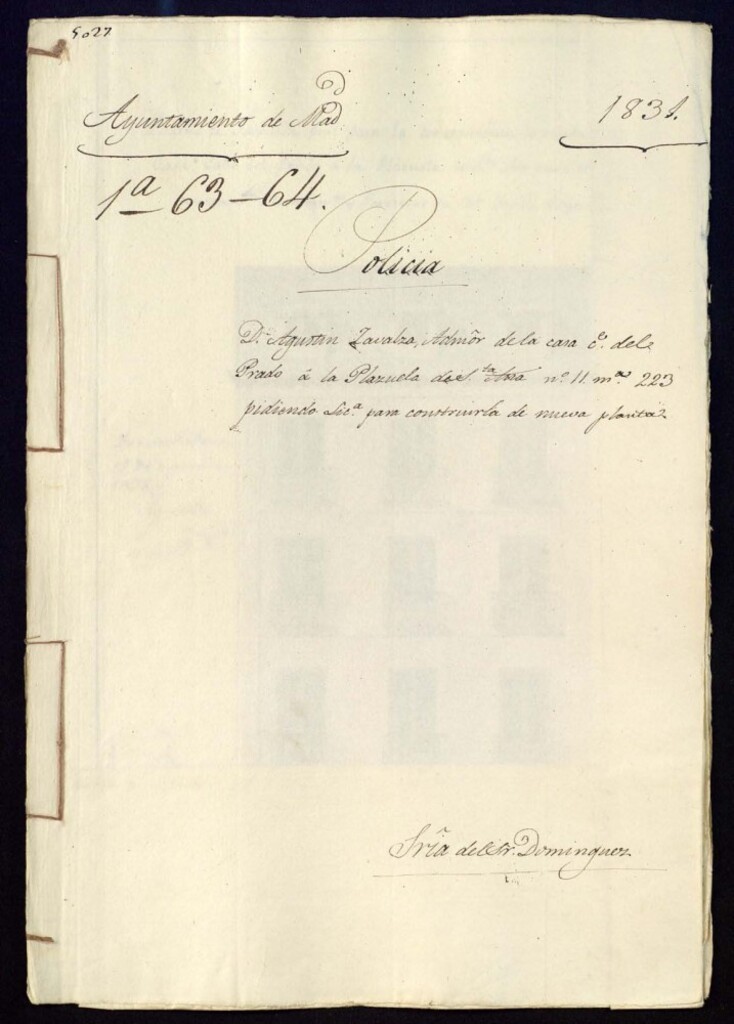 5027
Ayuntamiento de Mad.d
1831.
1ª 63-64.
Policia
Dn. Agustin Zavalza, Admōr de la casa ce. del
Prado á la Plazuela de Sta. Ana nº. 11. mª. 223
pidiendo Lic.ª para construirla de nueva planta
Sr̃ia del Sr. Dominguez